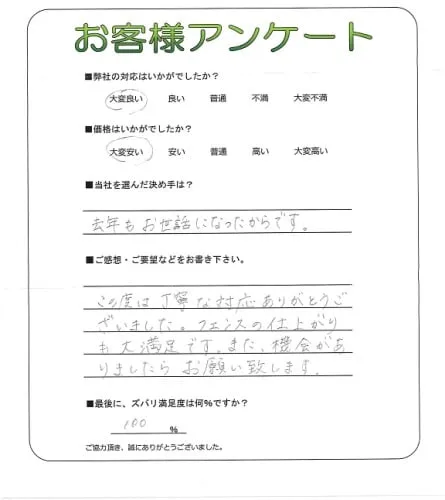 お客様アンケート
■弊社の対応はいかがでしたか？
大変良い 良い 普通 不満 大変不満
■価格はいかがでしたか？
大変安い 安い 普通 高い 大変高い
■当社を選んだ決め手は？
去年もお世話になったからです。
■ご感想・ご要望などをお書き下さい。
この度は丁寧な対応ありがとうご
ざいました。フェンスの仕上がり
も大満足です。また、機会があ
りましたらお願い致します。
■最後に、ズバリ満足度は何%ですか？
100 %
ご協力頂き、誠にありがとうございました。